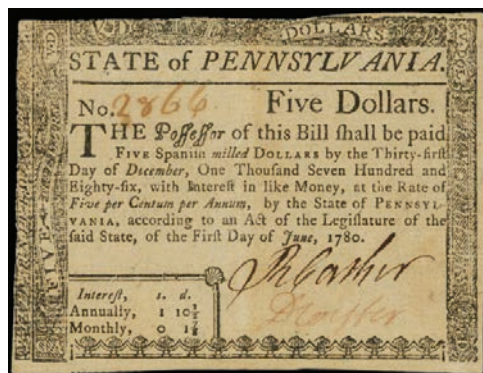 DOLLARS
STATE of PENNSYLVANIA.
No. 2866 Five Dollars.
THE Poſſeſſor of this Bill ſhall be paid
FIVE Spaniſh milled DOLLARS by the Thirty-firſt
Day of December, One Thouſand Seven Hundred and
Eighty-ſix, with Intereſt in like Money, at the Rate of
Five per Centum per Annum, by the State of PENNSYL-
VANIA, according to an Act of the Legiſlature of the
ſaid State, of the Firſt Day of June, 1780.
Intereſt, s. d.
Annually, 1 10½
Monthly, 0 1⅞
FIVE